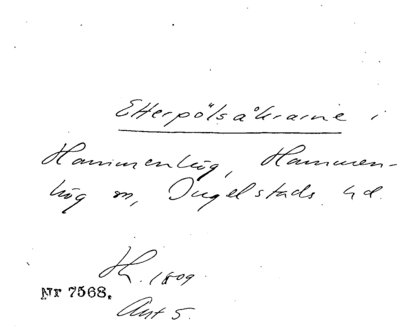 Etterpölsåkrarne i
Hammenhög, Hammen-
hög sn, Ingelstads hd.
Sk. 1809
Nr 7568.
Akt 5.